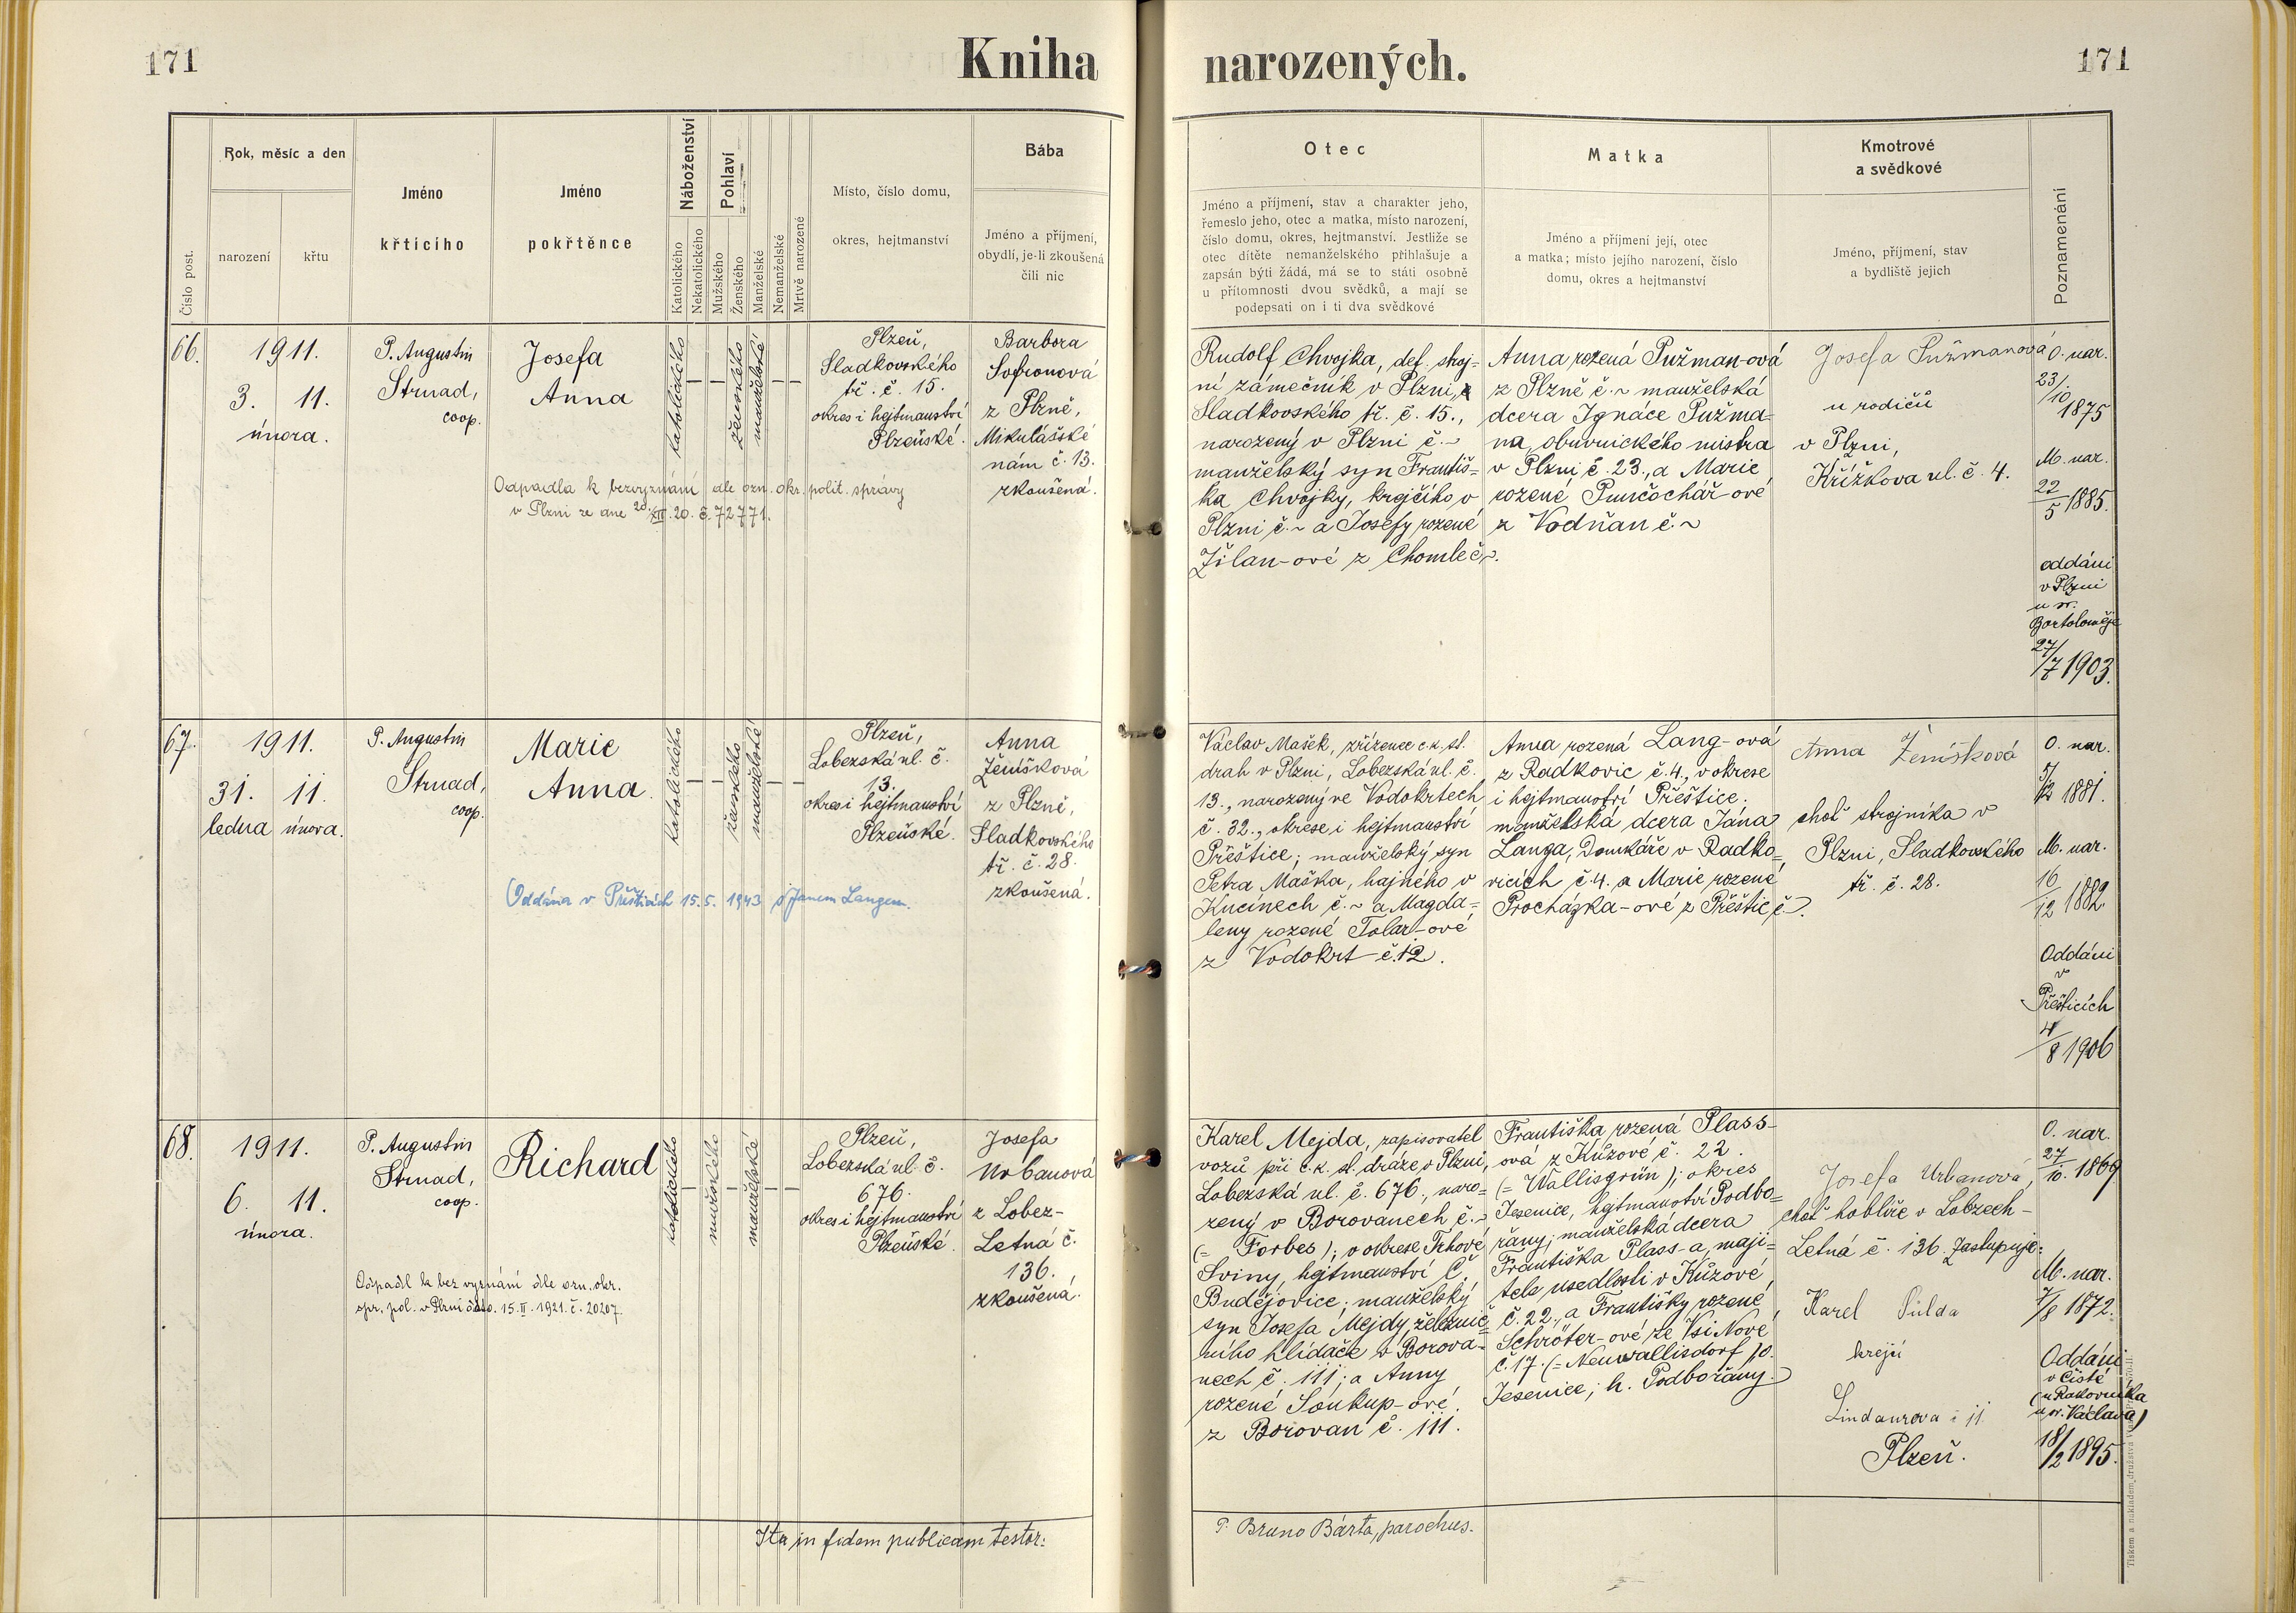 171
Kniha
narozených.
171
Číslo post.
Rok, měsíc a den
narození
křtu
Jméno
křtícího
Jméno
pokřtěnce
Náboženství
Katolického
Nekatolického
Pohlaví
Mužského
Ženského
Manželské
Nemanželské
Mrtvě narozené
Místo, číslo domu,
okres, hejtmanství
Bába
Jméno a příjmení,
obydlí, je-li zkoušená
čili nic
Otec
Jméno a příjmení, stav a charakter jeho,
řemeslo jeho, otec a matka, místo narození,
číslo domu, okres, hejtmanství. Jestliže se
otec dítěte nemanželského přihlašuje a
zapsán býti žádá, má se to státi osobně
u přítomnosti dvou svědků, a mají se
podepsati on i ti dva svědkové
Matka
Jméno a příjmení její, otec
a matka; místo jejího narození, číslo
domu, okres a hejtmanství
Kmotrové
a svědkové
Jméno, příjmení, stav
a bydliště jejich
Poznamenání
66.
1911.
3. 11.
února.
P. Augustin
Strnad,
coop.
Josefa
Anna
katolického
ženského
manželské
Plzeň,
Sladkovského
tř. č. 15.
okres i hejtmanství
Plzeňské.
Barbora
Sofronová
z Plzně,
Mikulášské
nám č. 13.
zkoušená.
Odpadla k bezvyznání dle ozn. okr. polit. správy
v Plzni ze dne 20./XII.20. č. 72771.
Rudolf Chvojka, def. stroj-
ní zámečník v Plzni,
Sladkovského tř. č. 15.,
narozený v Plzni č. ~
manželský syn Františ-
ka Chvojky, krejčího v
Plzni č. ~ a Josefy rozené
Žílan-ové z Chomle č. ~.
Anna rozená Pužman-ová
z Plzně č. ~ manželská
dcera Ignáce Pužma-
na, obuvnického mistra
v Plzni č. 23., a Marie
rozené Punčochář-ové
z Vodňan č. ~
Josefa Pužmanová
u rodičů
v Plzni,
Křížkova ul. č. 4.
O. nar.
23/10 1875
M. nar.
22/5 1885.
oddáni
v Plzni
u sv.
Bartoloměje
27/7 1903.
67.
1911.
31. 11.
ledna února.
P. Augustin
Strnad,
coop.
Marie
Anna.
katolického
ženského
manželské
Plzeň,
Lobezská ul. č.
13.
okres i hejtmanství
Plzeňské.
Anna
Ženíšková
z Plzně,
Sladkovského
tř. č. 28.
zkoušená.
Oddána v Přešticích 15.5. 1943 s Janem Langem.
Václav Mašek, zřízenec c.k. st.
drah v Plzni, Lobezská ul. č.
13., narozený ve Vodokrtech
č. 32., okrese i hejtmanství
Přeštice; manželský syn
Petra Maška, hajného v
Kucínech č. ~ a Magda-
leny rozené Tolar-ové
z Vodokrt č. 12.
Anna rozená Lang-ová
z Radkovic č. 4., v okrese
i hejtmanství Přeštice.
manželská dcera Jána
Langa, Domkáře v Radko-
vicích č. 4. a Marie rozené
Procházka-ové z Přeštic č. ~.
Anna Ženíšková
choť strojníka v
Plzni, Sladkovského
tř. č. 28.
O. nar.
5/12 1881.
M. nar.
16/12 1882.
Oddáni
v
Přešticích
4/8 1906
68.
1911.
6. 11.
února.
P. Augustin
Strnad,
coop.
Richard
katolického
mužského
manželské
Plzeň,
Lobezská ul. č.
676.
okres i hejtmanství
Plzeňské.
Josefa
Urbanová
z Lobez-
Letná č.
136.
zkoušená.
Odpadl k bez vyznání dle ozn. okr.
spr. pol. v Plzni ddto. 15.II.1921. č. 20207.
Karel Mejda, zapisovatel
vozů při c.k. st. dráze v Plzni,
Lobezská ul. č. 676., naro-
zený v Borovanech č. ~
(= Forbes); v okrese Trhové
Sviny, hejtmanství Č.
Budějovice; manželský
syn Josefa Mejdy železnič-
ního hlídače v Borova-
nech č. 111; a Anny
rozené Soukup-ové.
z Borovan č. 111.
Františka rozená Plass-
ová z Kůzové č. 22.
(= Wallisgrün); okres
Jesenice, hejtmanství Podbo-
řany; manželská dcera
Františka Plass-a, maji-
tele usedlosti v Kůzové
č. 22., a Františky rozené
Schröter-ové ze Vsi Nové
č. 17. (= Neuwallisdorf) o.
Jesenice; h. Podbořany.
Josefa Urbanová,
choť hoblíře v Lobzech-
Letná č. 136. Zastupuje:
Karel Půlda
krejčí
Lindaurova č 11.
Plzeň.
O. nar.
27/10. 1869
M. nar.
7/8 1872.
Oddáni
v Čisté
(u Rakovníka
u sv. Václava)
18/2 1895.
Ita in fidem publicam testor:
P. Bruno Bárta, parochus.